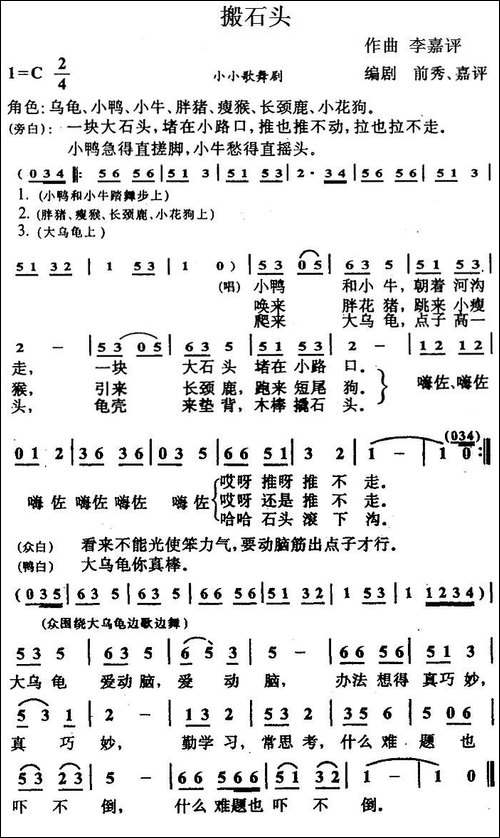 搬石头
作曲 李嘉评
1=C 2/4
小小歌舞剧
编剧 前秀、嘉评
角色:乌龟、小鸭、小牛、胖猪、瘦猴、长颈鹿、小花狗。
(旁白):一块大石头,堵在小路口,推也推不动,拉也拉不走。
小鸭急得直搓脚,小牛愁得直摇头。
(034 ‖: 56 56 | 56 56 | 51 53 | 2·34 | 56 56 | 56 56 |
1.(小鸭和小牛踏舞步上)
2.(胖猪、瘦猴、长颈鹿、小花狗上)
3.(大乌龟上)
51 32 | 1 53 | 1 0) | 53 05 | 63 5 | 51 53 |
(唱) 小鸭 和小 牛, 朝着 河沟
唤来 胖花 猪, 跳来 小瘦
爬来 大乌 龟, 点子 高一
2 - | 53 05 | 63 5 | 51 53 | 2 - | 12 12 |
走, 一块 大石 头 堵在 小路 口。
猴, 引来 长颈 鹿, 跑来 短尾 狗。 嗨佐、嗨佐
头, 龟壳 来垫 背, 木棒 撬石 头。
(034)
01 2 | 36 36 | 03 5 | 66 51 | 3 2 | 1 - | 1 0 :‖
哎呀 推呀 推 不 走。
嗨 佐 嗨佐 嗨佐 嗨佐 哎呀 还是 推 不 走。
哈哈 石头 滚 下 沟。
(众白) 看来不能光使笨力气,要动脑筋出点子才行。
(鸭白) 大乌龟你真棒。
(035 | 63 5 | 63 5 | 66 56 | 51 32 | 1 53 | 1 1234) |
(众围绕大乌龟边歌边舞)
53 5 | 63 5 | 65 3 | 5 - | 66 56 | 51 53 |
大乌 龟 爱动 脑, 爱 动 脑, 办法 想得 真巧 妙,
53 1 | 2 - | 13 2 | 53 2 | 35 6 | 5 06 |
真 巧 妙, 勤学 习, 常思 考, 什么 难 题 也
53 23 | 5 - | 66 566 | 51 32 | 1 - | 1 0 ‖
吓 不 倒, 什么 难题也 吓 不 倒。